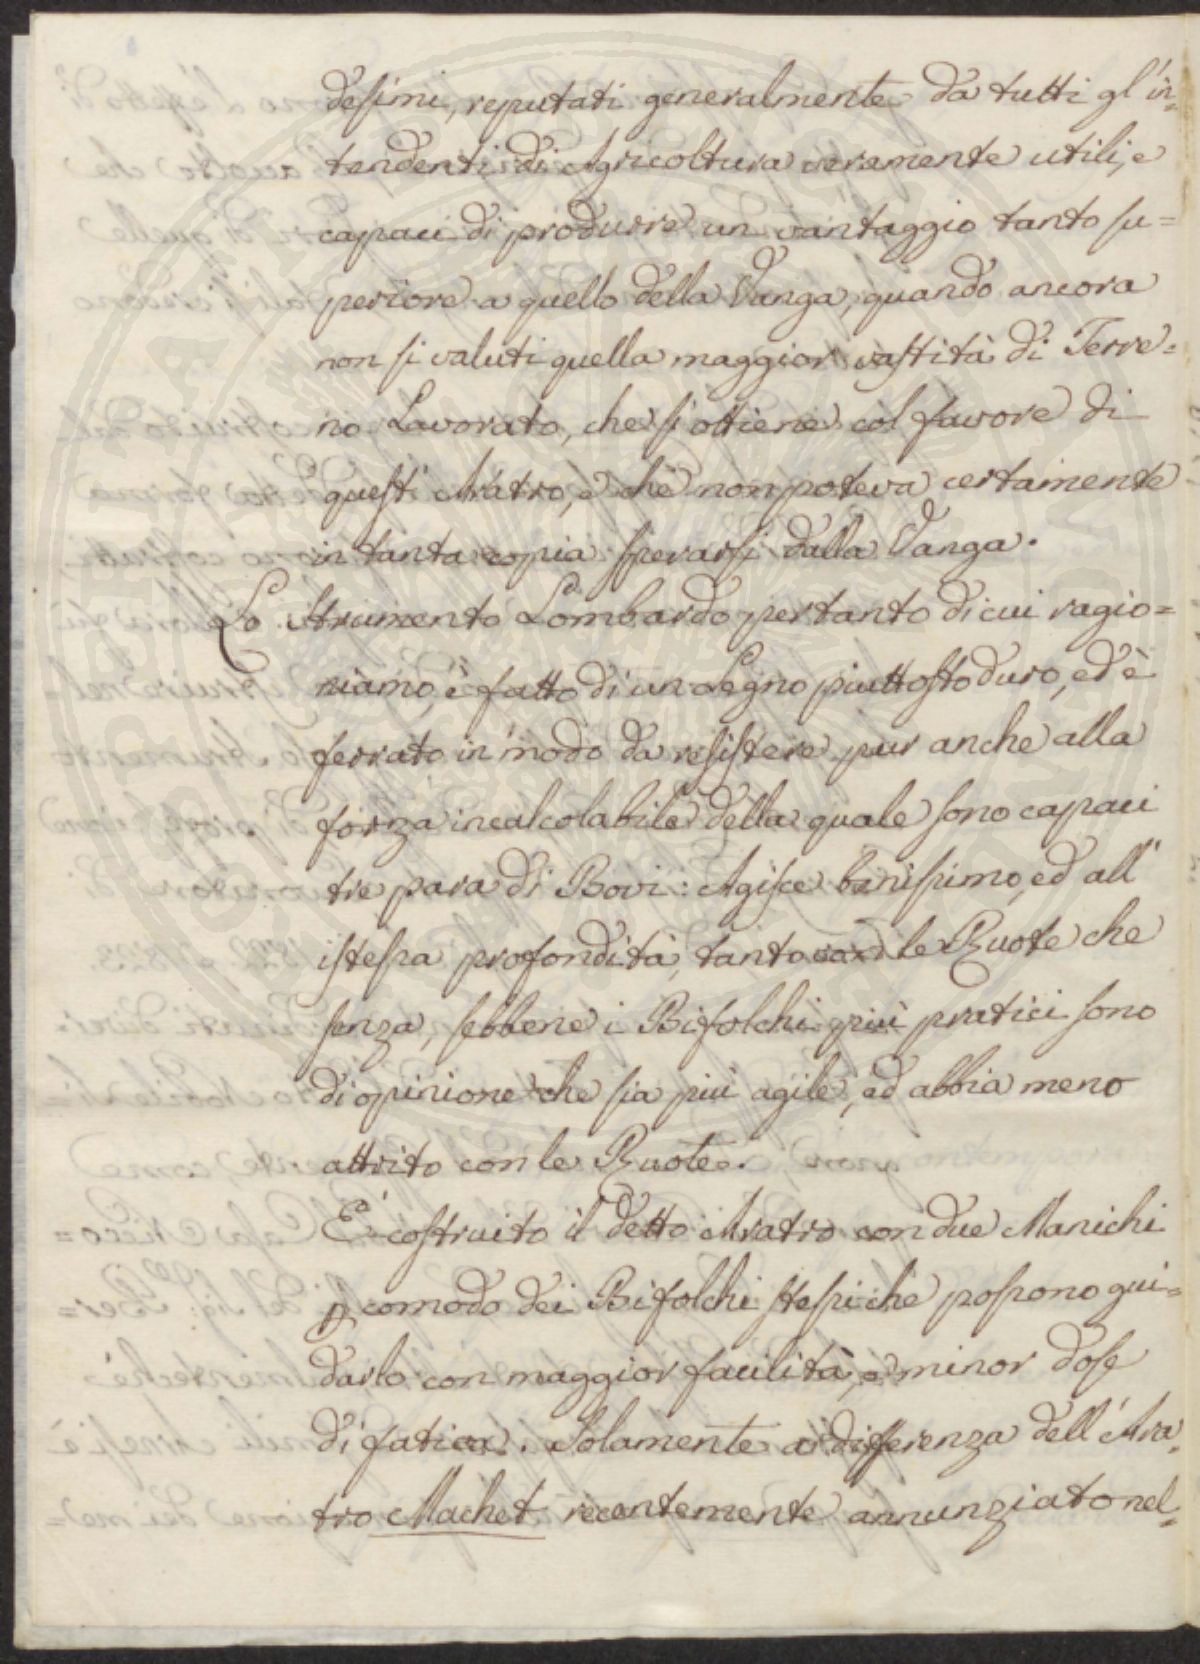 desimi, reputati generalmente da tutti gl'in=
tendenti di Agricoltura veramente utili, e
capaci di produrre un vantaggio tanto su=
periore a quello della Vanga, quando ancora
non si valuti quella maggior vastità di Terre=
no Lavorato, che si ottiene col favore di
quest'Aratro, e che non poteva certamente
in tanta copia sperarsi dalla Vanga.
Lo Strumento Lombardo pertanto di cui ragio=
niamo, è fatto di un Legno piuttosto duro, ed è
ferrato in modo da resistere pur anche alla
forza incalcolabile della quale sono capaci
tre para di Bovi: Agisce benissimo, ed all'
istessa profondità, tanto con le Ruote che
senza, sebbene i Bifolchi più pratici sono
di opinione che sia più agile, ed abbia meno
attrito con le Ruote.
È costruito il detto Aratro con due Manichi
p comodo dei Bifolchi stessi che possono gui=
darlo con maggior facilità, e minor dose
di fatica. Solamente a differenza dell'Ara=
tro Machet recentemente annunziato nel=